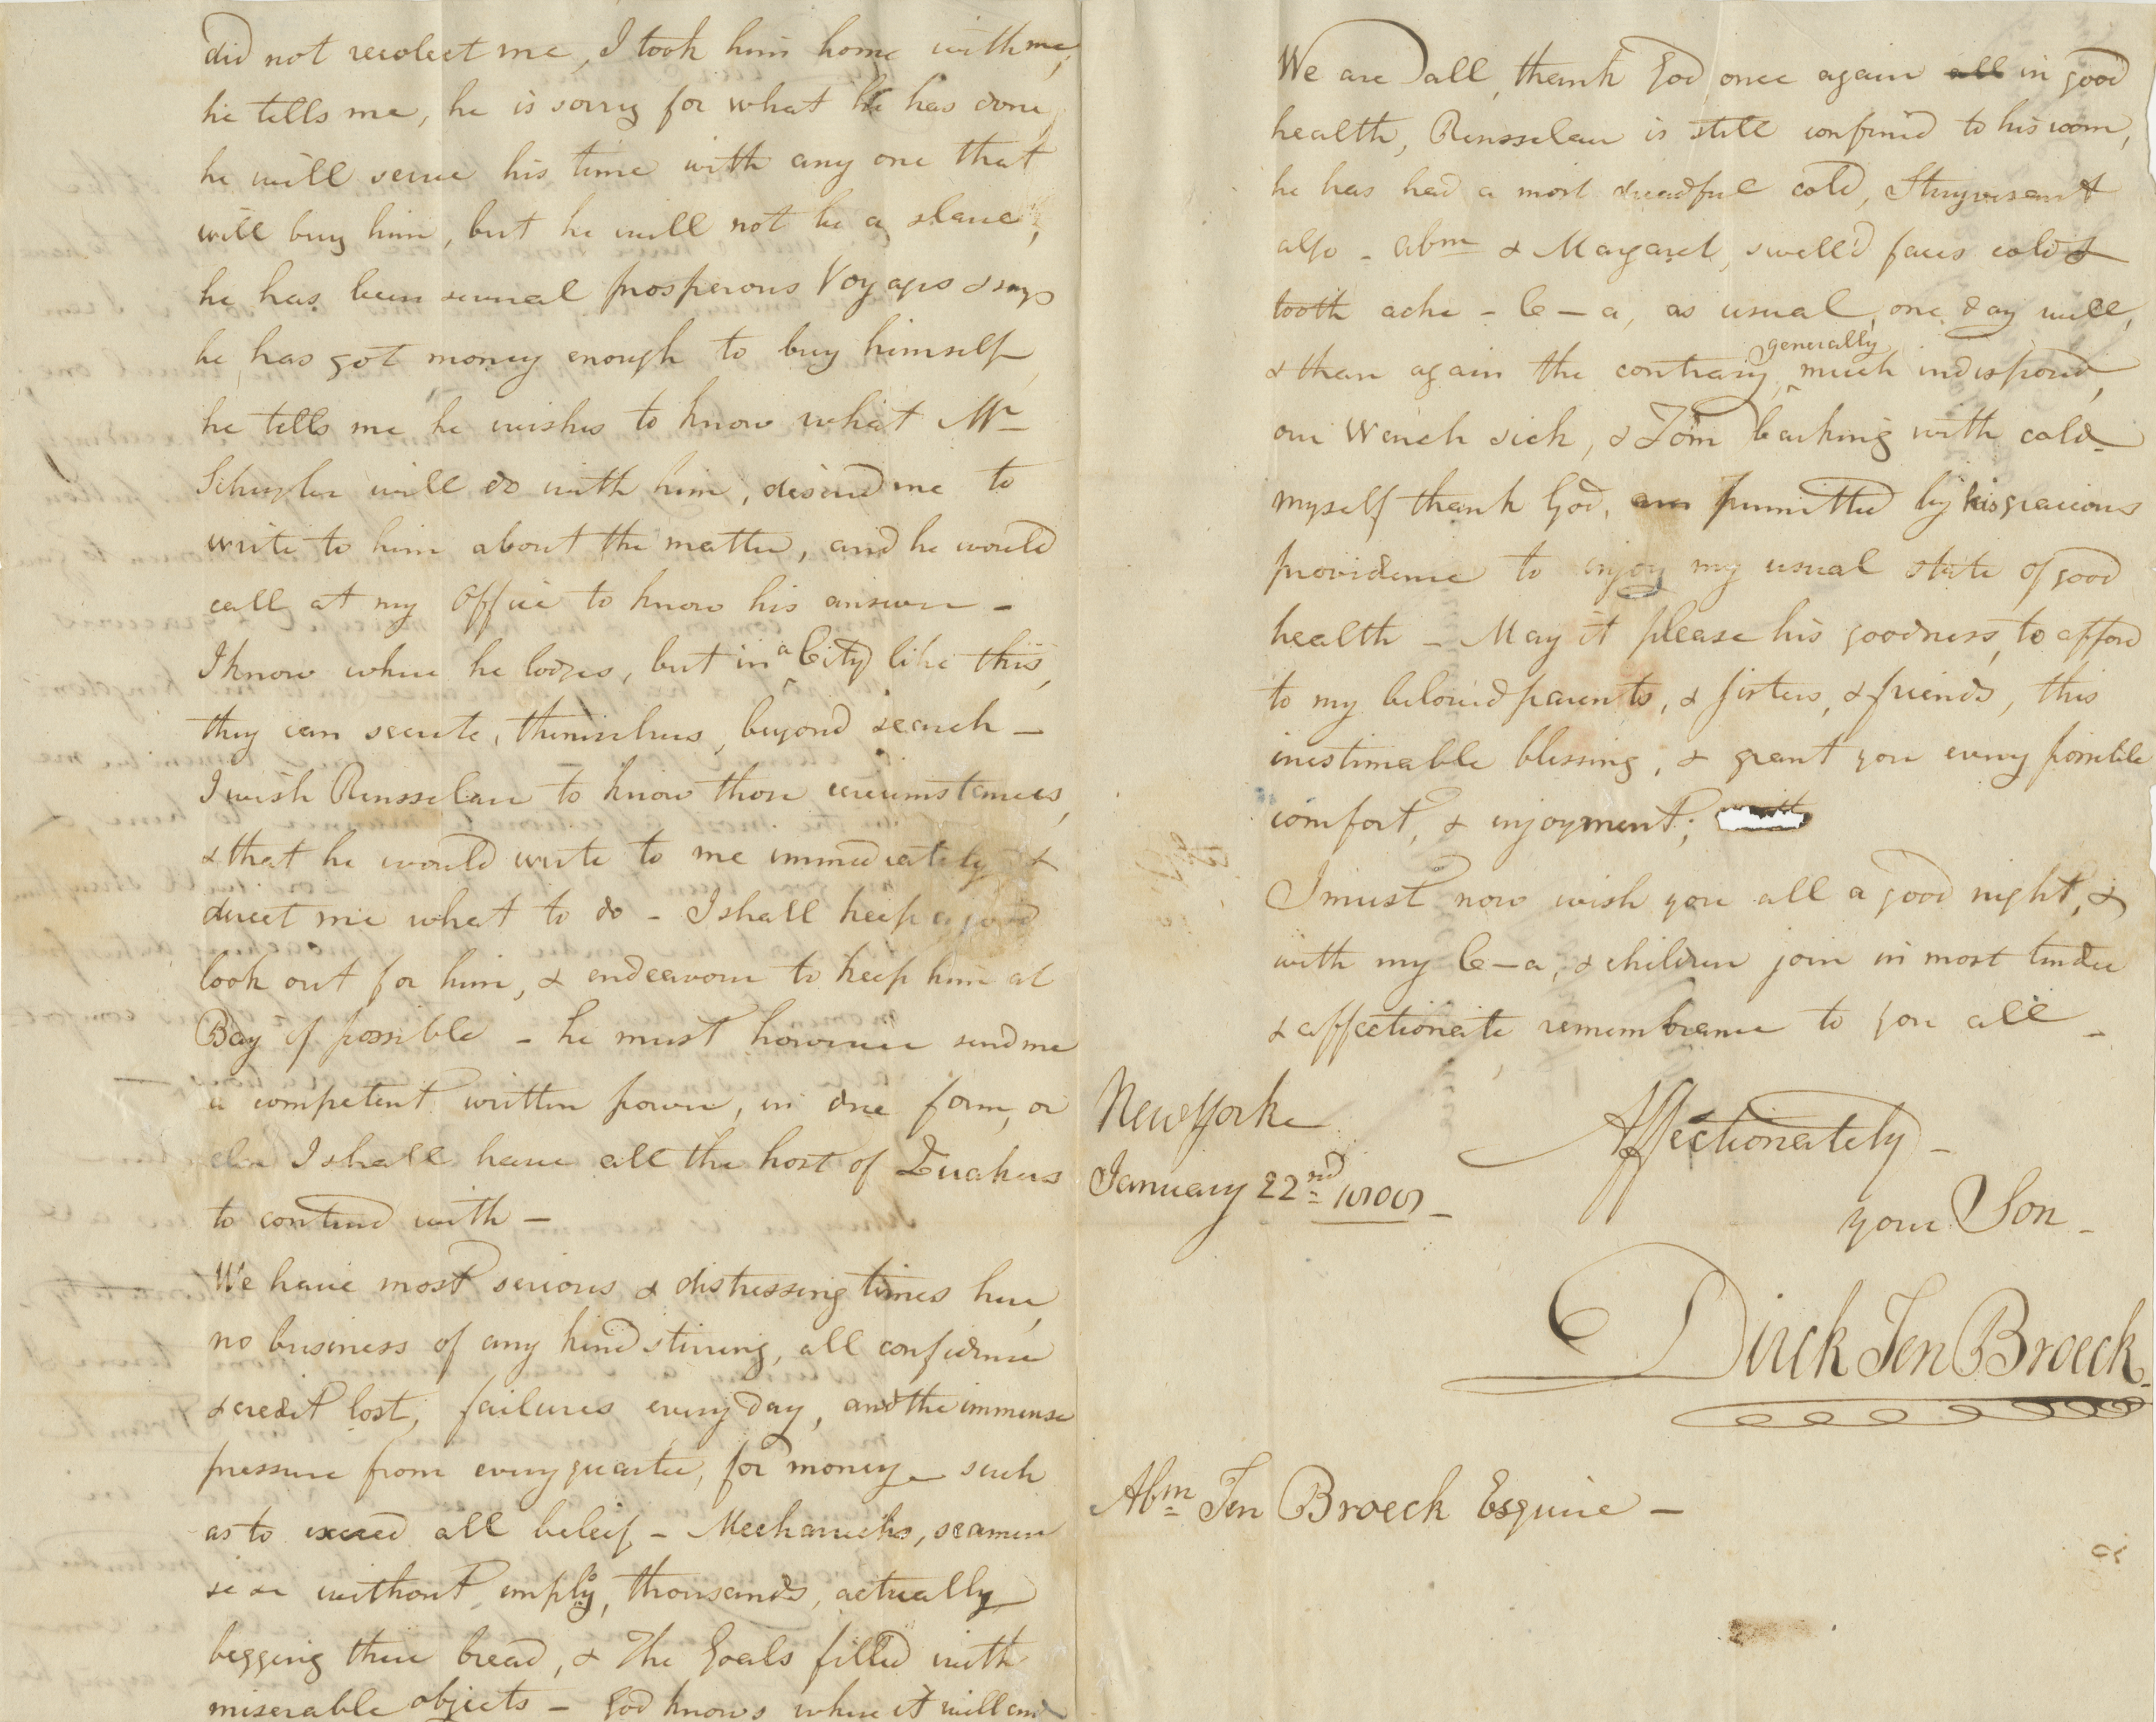 did not recolect me, I took him home with me,
he tells me, he is sorry for what he has done,
he will serve his time with any one that
will buy him, but he will not be a slave,
he has been several prosperous Voyages & says
he has got money enough to buy himself,
he tells me he wishes to know what Mr
Schuyler will do with him, desired me to
write to him about the matter, and he would
call at my office to know his answer -
I know where he lodges, but in a City like this,
they can secrete, themselves, beyond search -
I wish Rensselaer to know those circumstances,
& that he would write to me immediately &
direct me what to do - I shall keep a good
look out for him, & endeavour to keep him at
Bay if possible - he must however send me
a competent written power, in due form, or
else I shall have all the host of Quakers
to contend with -
We have most serious & distressing times here,
no business of any kind stirring, all confidence
& credit lost, failures every day, and the immense
pressure from every quarter, for money - such
as to exceed all beleif - Mechanicks, seamen
&c &c without imploy, thousands, actually
begging there bread, & The Goals filled with
miserable objects - God knows where it will end
We are all, thank God once again all in good
health, Rensselaer is still confined to his room,
he has had a most dreadful cold, Stuyvesant
also - Abm & Margaret, swell'd faces cold &
tooth ache - C - a, as usual, one day well,
& then again the contrary, generally much indisposed,
our Wench sick, & Tom barking with cold -
myself thank God, am permitted by his gracious
providence to injoy my usual state of good
health - May it please his goodness, to afford
to my beloved parents, & sisters, & friends, this
inestimable blessing, & grant you every possible
comfort, & injoyment; with
I must now wish you all a good night, &
with my C - a, & children join in most tender
& affectionate remembrance to you all -
New York
January 22nd 1808 -
Affectionately -
your Son -
Dirck Ten Broeck.
Abm Ten Broeck Esquire -